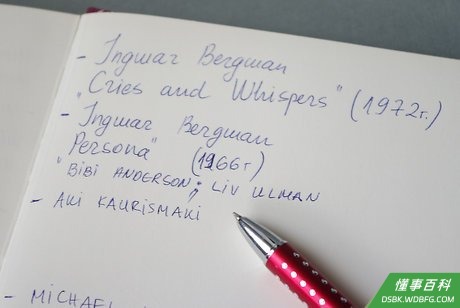 - Ingmar Bergman
"Cries and Whispers" (1972г.)
- Ingmar Bergman
Persona" (1966г)
"BIBI ANDERSON; LIV ULMAN
- AKI KAURISMAKI
- MICHAEL
懂事百科
DSBK.WDBFG.COM